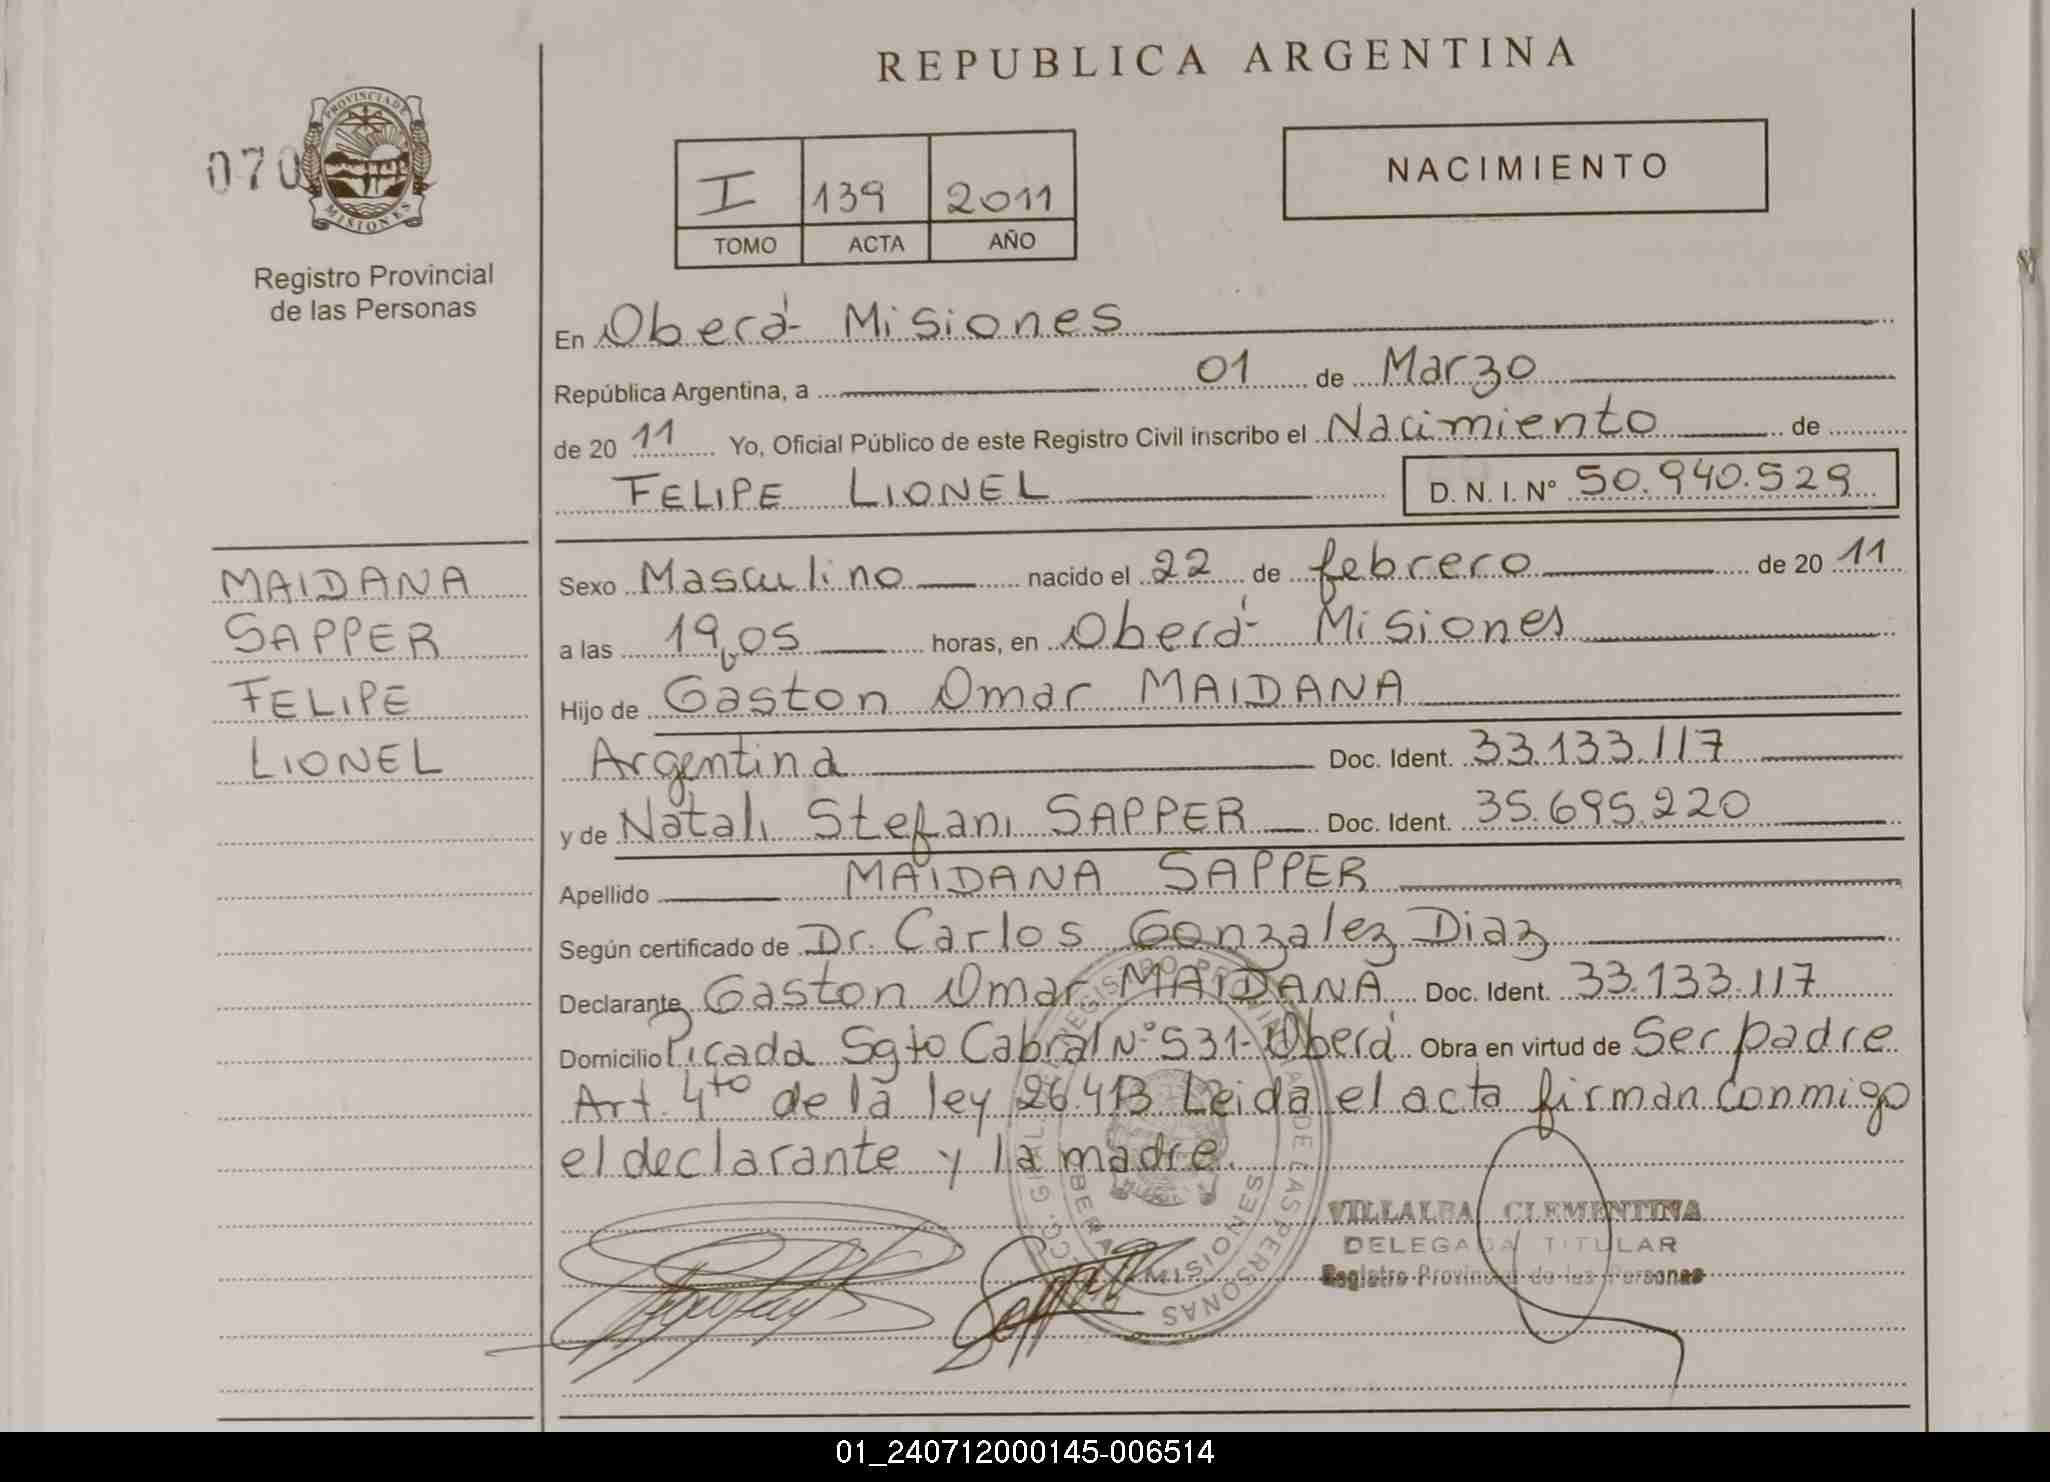 REPUBLICA ARGENTINA
070
PROVINCIA DE
MISIONES
Registro Provincial
de las Personas
I 139 2011
TOMO ACTA AÑO
NACIMIENTO
En Oberá - Misiones
República Argentina, a 01 de Marzo
de 2011 Yo, Oficial Público de este Registro Civil inscribo el Nacimiento de
FELIPE LIONEL D. N. I. N° 50.940.529
MAIDANA
SAPPER
FELIPE
LIONEL
Sexo Masculino nacido el 22 de febrero de 2011
a las 19,05 horas, en Oberá - Misiones
Hijo de Gaston Omar MAIDANA
Argentina Doc. Ident. 33.133.117
y de Natali Stefani SAPPER Doc. Ident. 35.695.220
Apellido MAIDANA SAPPER
Según certificado de Dr. Carlos Gonzalez Diaz
Declarante Gaston Omar MAIDANA Doc. Ident. 33.133.117
Domicilio Picada Sgto Cabral N° 531 - Oberá Obra en virtud de Ser padre
Art. 4to de la ley 26.413 Leida el acta firman conmigo
el declarante y la madre.
REGISTRO PROVINCIAL DE LAS PERSONAS
MISIONES
VILLALBA CLEMENTINA
DELEGADA TITULAR
Registro Provincial de las Personas
01_240712000145-006514